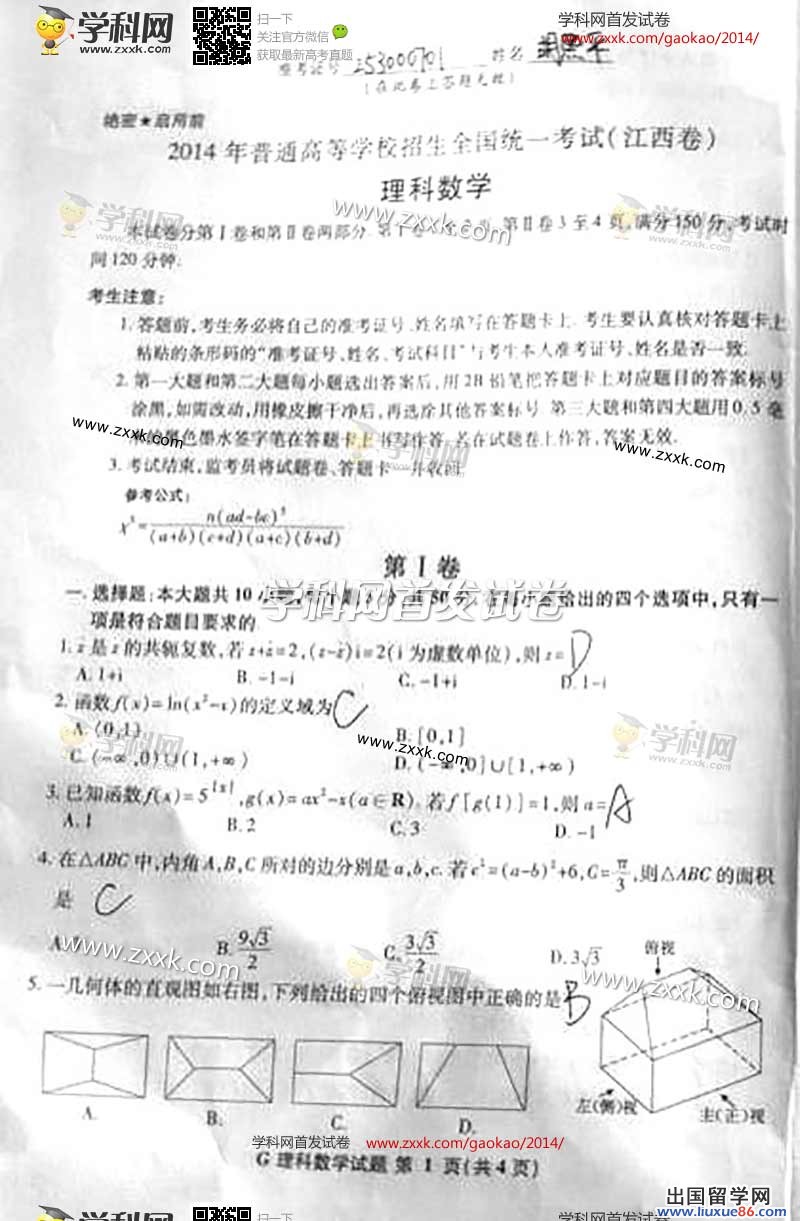 学科网 扫一扫 学科网首发试卷
www.zxxk.com 关注官方微信 www.zxxk.com/gaokao/2014/
获取最新高考真题
姓名
绝密★启用前
2014年普通高等学校招生全国统一考试(江西卷)
理科数学
本试卷分第Ⅰ卷和第Ⅱ卷两部分 第Ⅱ卷3至4页,满分150分,考试时
间120分钟.
考生注意:
1.答题前,考生务必将自己的准考证号、姓名填写在答题卡上 考生要认真核对答题卡上
粘贴的条形码的“准考证号、姓名、考试科目”与考生本人准考证号、姓名是否一致.
2.第一大题和第二大题每小题选出答案后,用2B铅笔把答题卡上对应题目的答案标号
涂黑,如需改动,用橡皮擦干净后,再选涂其他答案标号 第三大题和第四大题用0.5毫
米的黑色墨水签字笔在答题卡上书写作答 若在试题卷上作答,答案无效.
3.考试结束,监考员将试题卷、答题卡一并收回
参考公式:
n(ad-bc)
(a+b)(c+d)(a+c)(b+d)
第Ⅰ卷
学科网首发试卷
一 选择题:本大题共10小 50分 给出的四个选项中,只有一
项是符合题目要求的
1.z̄是z的共轭复数,若z+z̄=2,(z-z̄)i=2(i为虚数单位),则z= D
A.1+i B.-1-i C.-1+i D.1-i
2.函数f(x)=ln(x²-x)的定义域为 C
A.(0,1) B.[0,1]
C.(-∞,0)∪(1,+∞) D.(-∞,0]∪[1,+∞)
3.已知函数f(x)=5^|x|,g(x)=ax²-x(a∈R).若f[g(1)]=1,则a= A
A.1 B.2 C.3 D.-1
4.在△ABC中,内角A,B,C所对的边分别是a,b,c.若c²=(a-b)²+6,C=π/3,则△ABC的面积
是 C
A. B.9√3/2 C.3√3/2 D.3√3
俯视
5.一几何体的直观图如右图,下列给出的四个俯视图中正确的是 B
A. B. C. D.
左(侧)视 主(正)视
学科网首发试卷 www.zxxk.com/gaokao/2014/
G 理科数学试题 第1页(共4页)
出国留学网
www.zxxk.com 扫一扫 学科网首发试卷 liuxue86.com